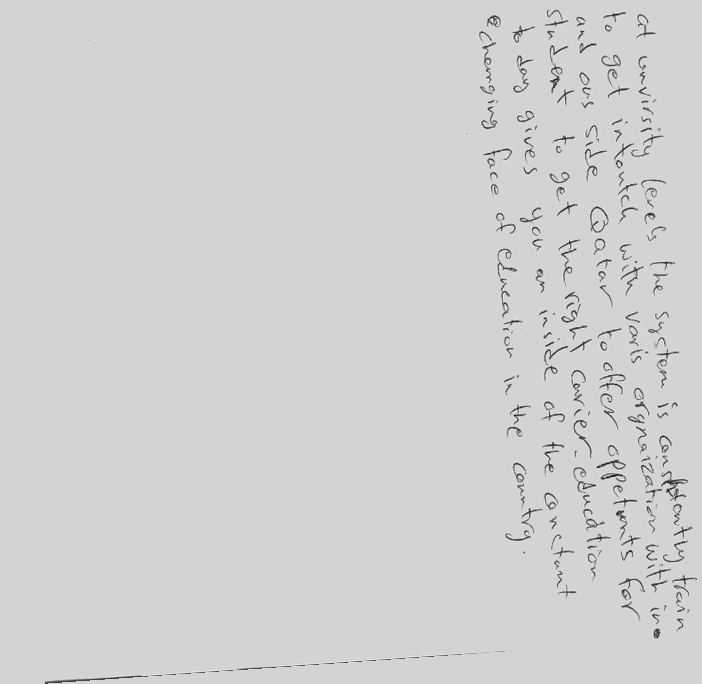 at unvirsity levels the system is constantly train
to get intoutch with varis orgnaization with in
and ous side Qatar to offer oppetunts for
student to get the right carier. education
to day gives you an inside of the conctant
changing face of education in the country.